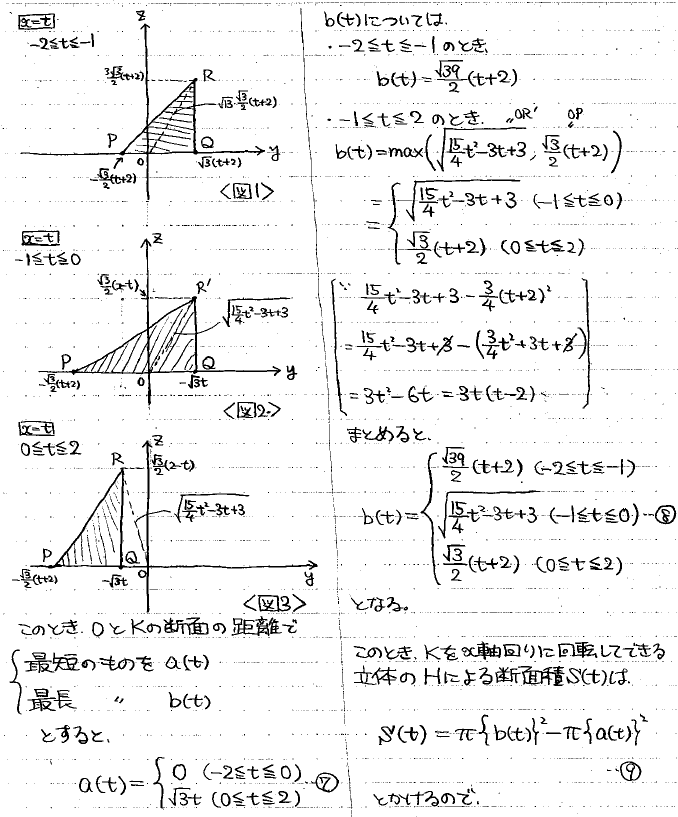 x=t
-2≦t≦-1
z
3√3/2(t+2)
R
√13・√3/2(t+2)
P
Q
y
0
-√3/2(t+2)
√3(t+2)
<図1>
x=t
-1≦t≦0
z
√3/2(2-t)
R'
√(15/4t²-3t+3)
P
Q
y
-√3/2(t+2)
0
-√3t
<図2>
x=t
0≦t≦2
z
R
√3/2(2-t)
√(15/4t²-3t+3)
P
Q
0
y
-√3/2(t+2)
-√3t
<図3>
このとき、OとKの断面の距離で
{最短のものを a(t)
最長 〃 b(t)
とすると、
a(t)={0 (-2≦t≦0)
√3t (0≦t≦2) ⑦
b(t)については、
・-2≦t≦-1のとき、
b(t)=√39/2(t+2)
・-1≦t≦2のとき、 "OR' OP
b(t)=max(√(15/4t²-3t+3), √3/2(t+2))
={√(15/4t²-3t+3) (-1≦t≦0)
√3/2(t+2) (0≦t≦2)
∵ 15/4t²-3t+3-3/4(t+2)²
=15/4t²-3t+3-(3/4t²+3t+3)
=3t²-6t=3t(t-2)
まとめると、
b(t)={√39/2(t+2) (-2≦t≦-1)
√(15/4t²-3t+3) (-1≦t≦0) ―⑧
√3/2(t+2) (0≦t≦2)
となる。
このとき、Kをx軸回りに回転してできる
立体のHによる断面積S(t)は、
S(t)=π{b(t)}²-π{a(t)}²
⑨
とかけるので、